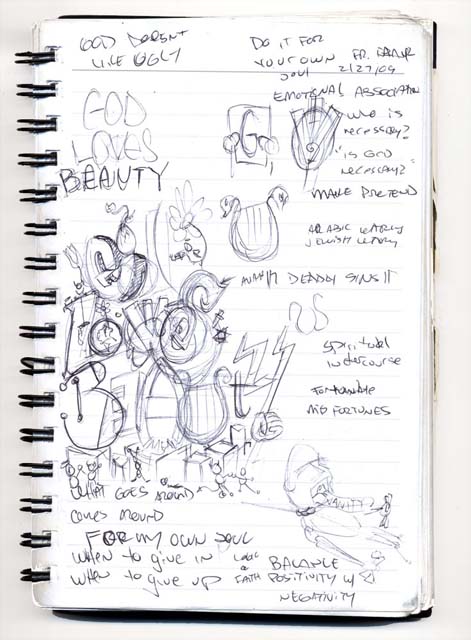 GOD DOESN'T
LIKE UGLY
DO IT FOR
YOUR OWN
SOUL
2/27/09
EMOTIONAL ASSOCIATION
GOD
LOVES
BEAUTY
G
who is
necessary?
"is GOD
necessary?"
MAKE PRETEND
ARABIC
JEWISH
DEADLY SINS
spiritual
intercourse
FORTUNES
VANITY?
WHAT GOES AROUND
comes AROUND
FOR MY OWN SOUL
WHEN TO GIVE IN
WHEN TO GIVE UP
LOGIC
FAITH
BALANCE
POSITIVITY W/
NEGATIVITY